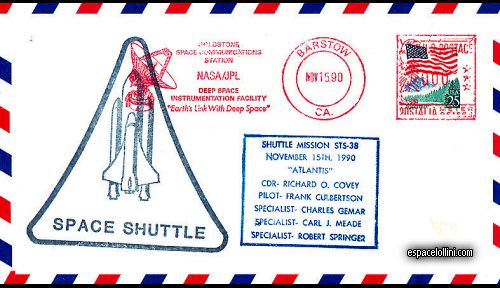 GOLDSTONE
SPACE COMMUNICATIONS
STATION
NASA/JPL
DEEP SPACE
INSTRUMENTATION FACILITY
"Earth's Link With Deep Space"
BARSTOW
NOV 15 90
CA.
USA 25
SPACE SHUTTLE
SHUTTLE MISSION STS-38
NOVEMBER 15TH, 1990
"ATLANTIS"
CDR- RICHARD O. COVEY
PILOT- FRANK CULBERTSON
SPECIALIST- CHARLES GEMAR
SPECIALIST- CARL J. MEADE
SPECIALIST- ROBERT SPRINGER
espacelollini.com